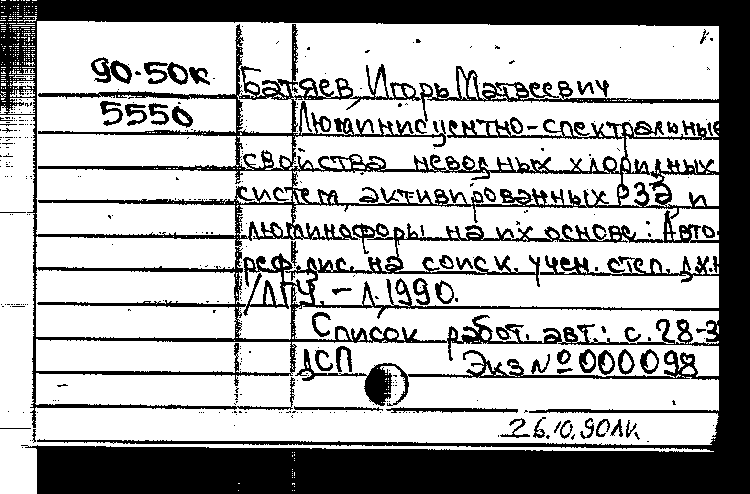 1.
90-50к Батяев Игорь Матвеевич
5550 Люминисцентно-спектральные
свойства неводных хлоридных
систем, активированных РЗЭ и
люминофоры на их основе: Авто-
реф. дис. на соиск. учен. степ. д.х.н
/ЛГУ. - Л. 1990.
Список работ. авт.: с. 28-3
ДСП Экз № 000098
26.10.90